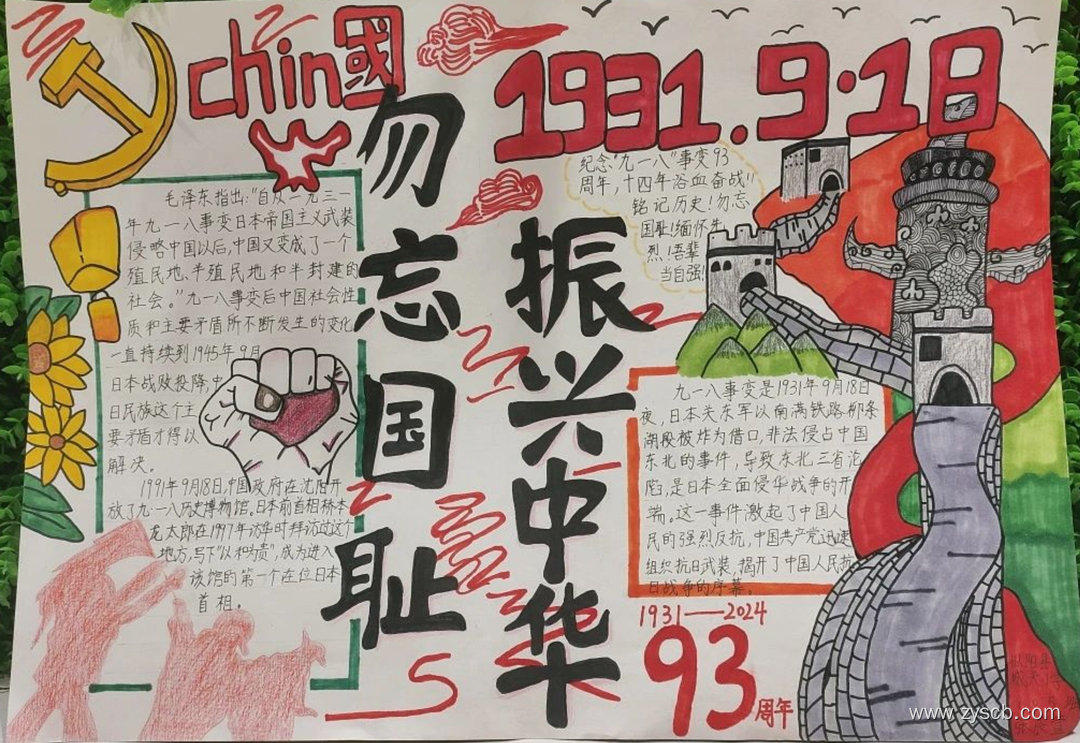 chin國
1931.9.18
勿忘国耻
振兴中华
毛泽东指出:"自从一九三一
年九一八事变日本帝国主义武装
侵略中国以后,中国又变成了一个
殖民地、半殖民地和半封建的
社会。"九一八事变后中国社会性
质和主要矛盾所不断发生的变化
一直持续到1945年9月
日本战败投降,中
日民族这个主
要矛盾才得以
解决。
1991年9月18日,中国政府在沈阳开
放了九一八历史博物馆,日本前首相桥本
龙太郎在1997年访华时拜访过这个
地方,写下"以和为贵",成为进入
该馆的第一个在位日本
首相。
纪念"九一八"事变93
周年,十四年浴血奋战!
铭记历史!勿忘
国耻!缅怀先
烈!吾辈
当自强!
九一八事变是1931年9月18日
夜,日本关东军以南满铁路柳条
湖段被炸为借口,非法侵占中国
东北的事件,导致东北三省沦
陷,是日本全面侵华战争的开
端。这一事件激起了中国人
民的强烈反抗,中国共产党迅速
组织抗日武装,揭开了中国人民抗
日战争的序幕。
1931——2024
93周年
www.zyscb.com